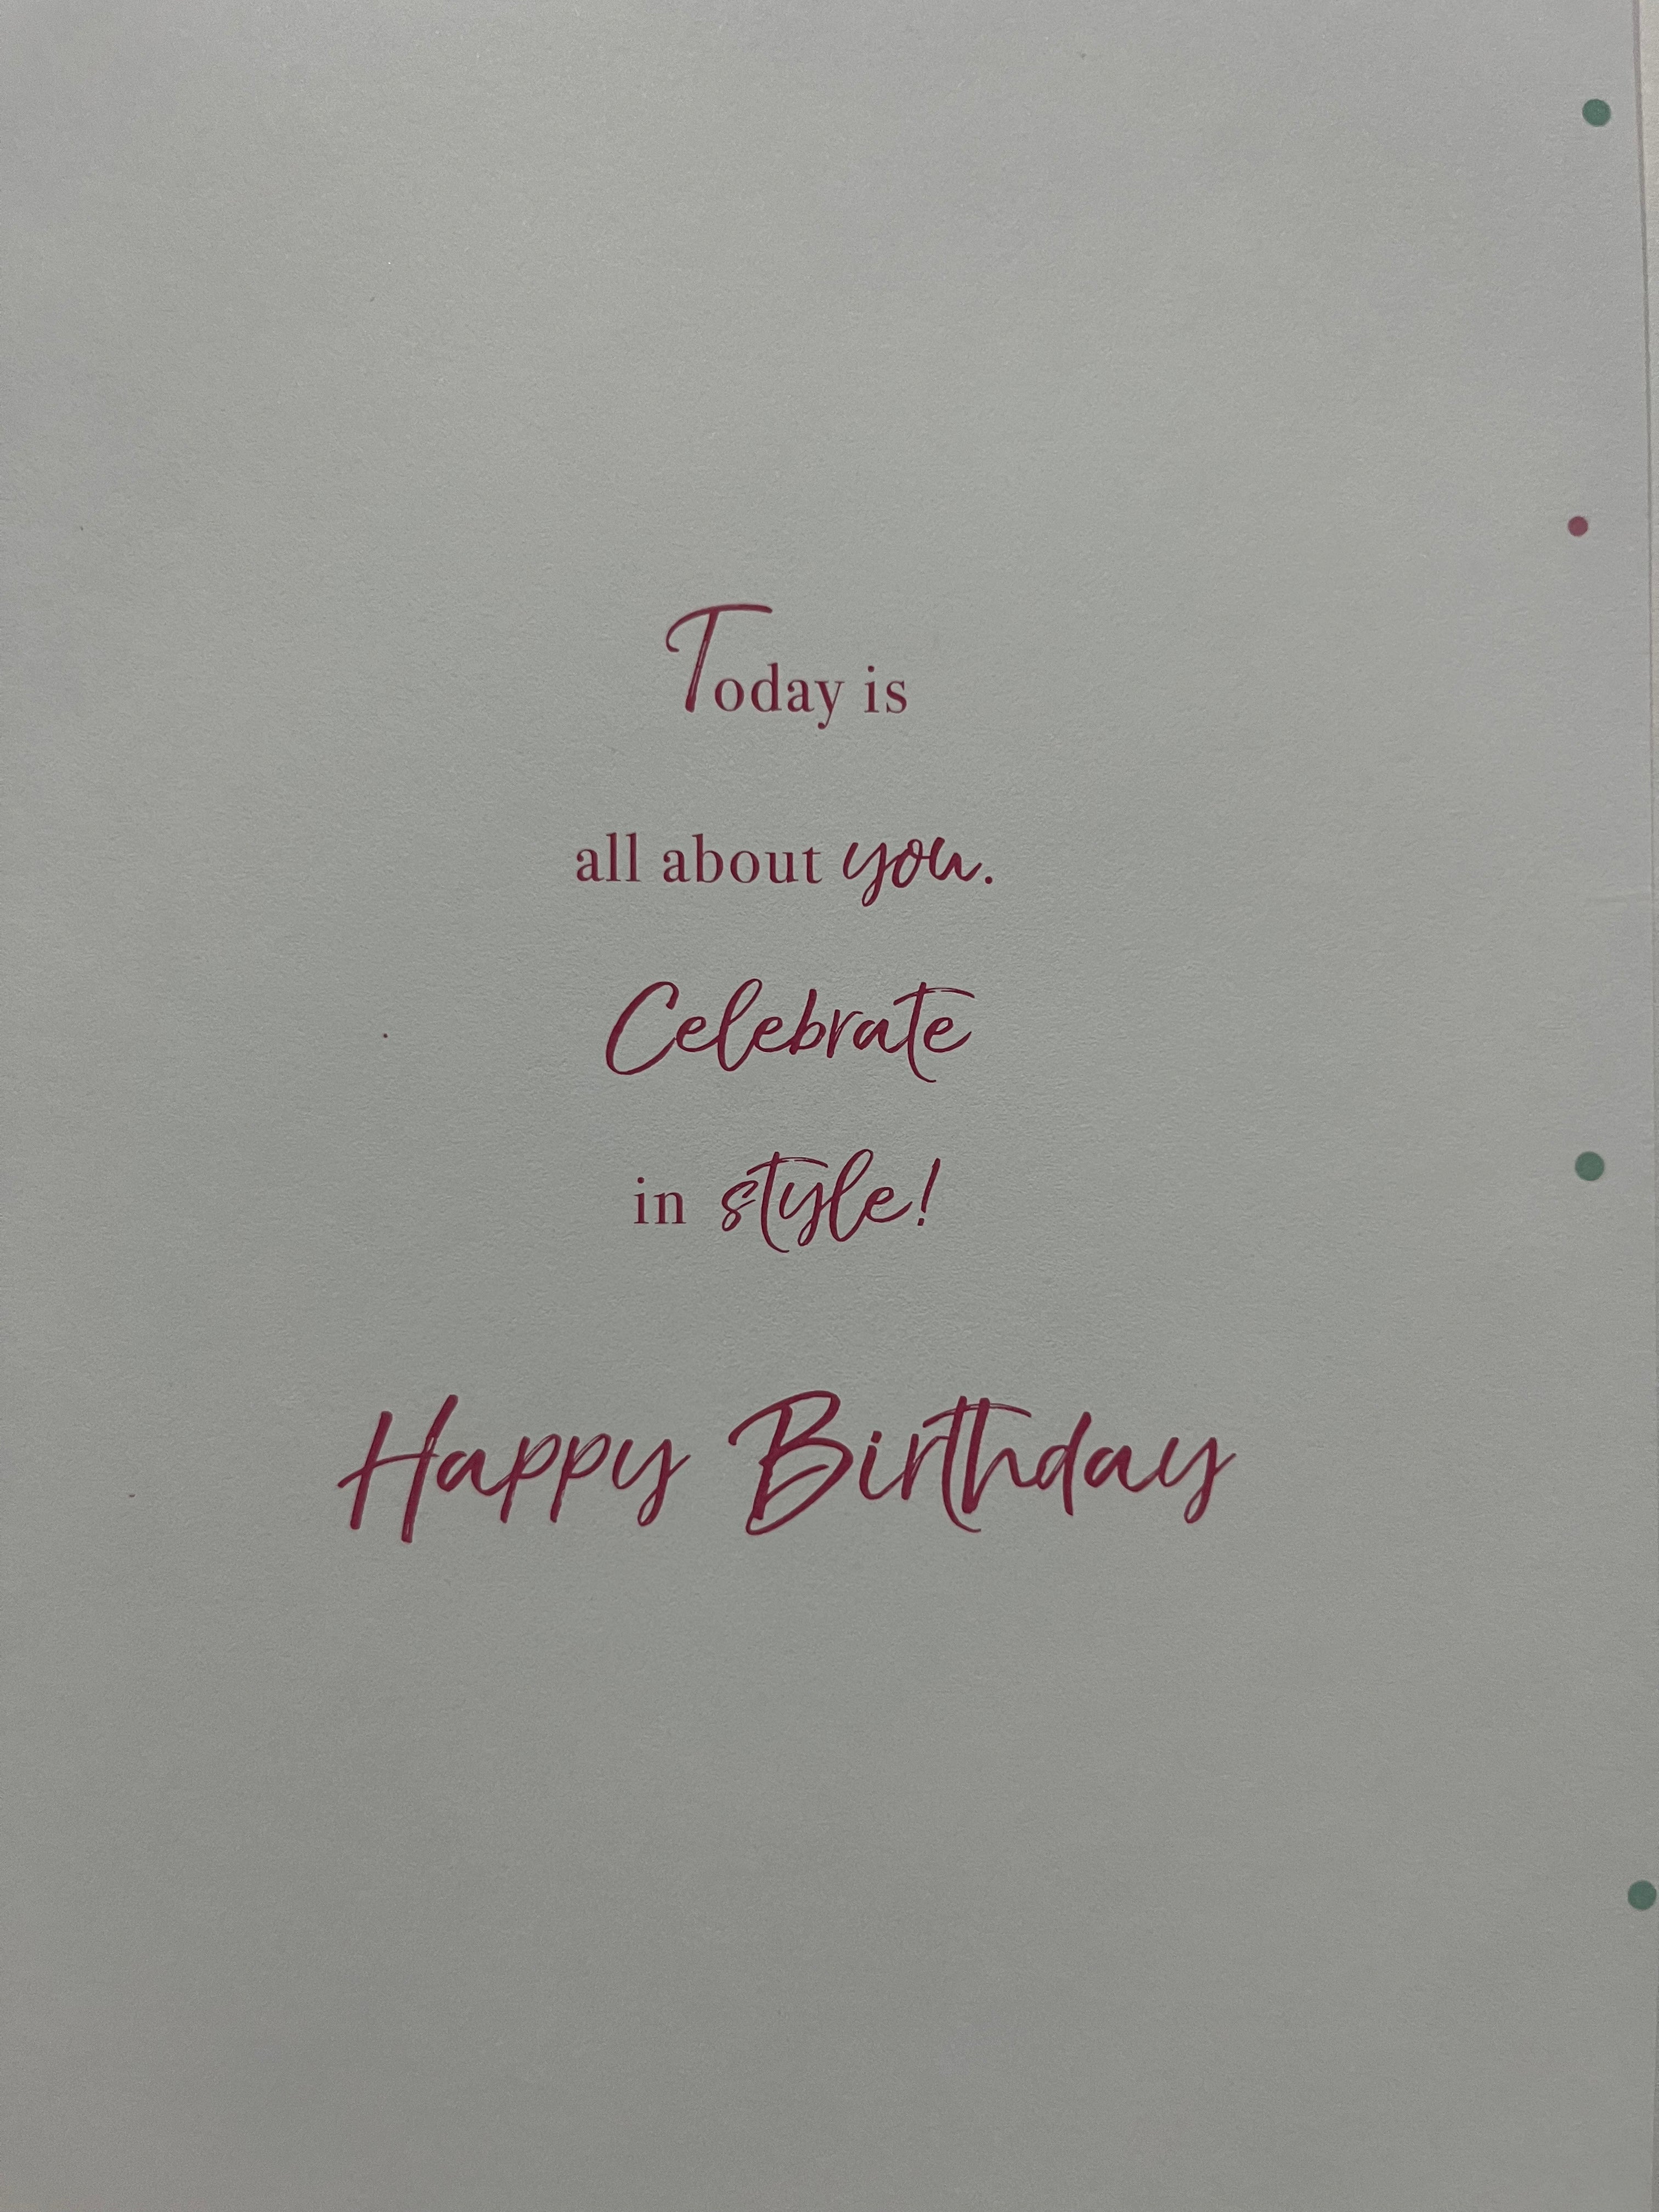 Today is
all about you.
Celebrate
in style!
Happy Birthday